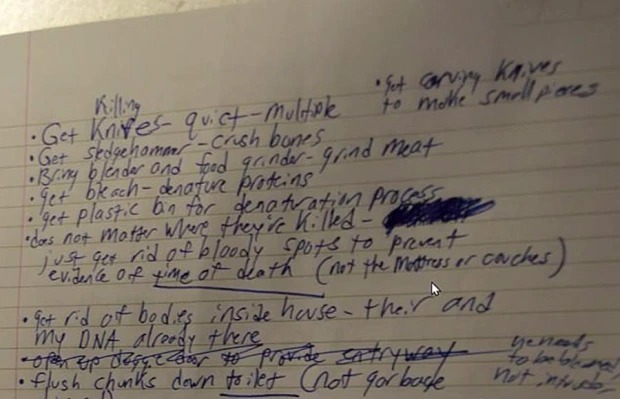 Killing
• get carving Knives
to make small pieces
• Get Knives - quiet - multiple
• Get sledgehammer - crush bones
• Bring blender and food grinder - grind meat
• get bleach - denature proteins
• get plastic bin for denaturation process
• does not matter where they're killed -
just get rid of bloody spots to prevent
evidence of time of death (not the mattress or couches)
• get rid of bodies inside house - their and
my DNA already there
• open up doggy door to provide entryway
needs
to be blamed
not intruder
• flush chunks down toilet (not garbage